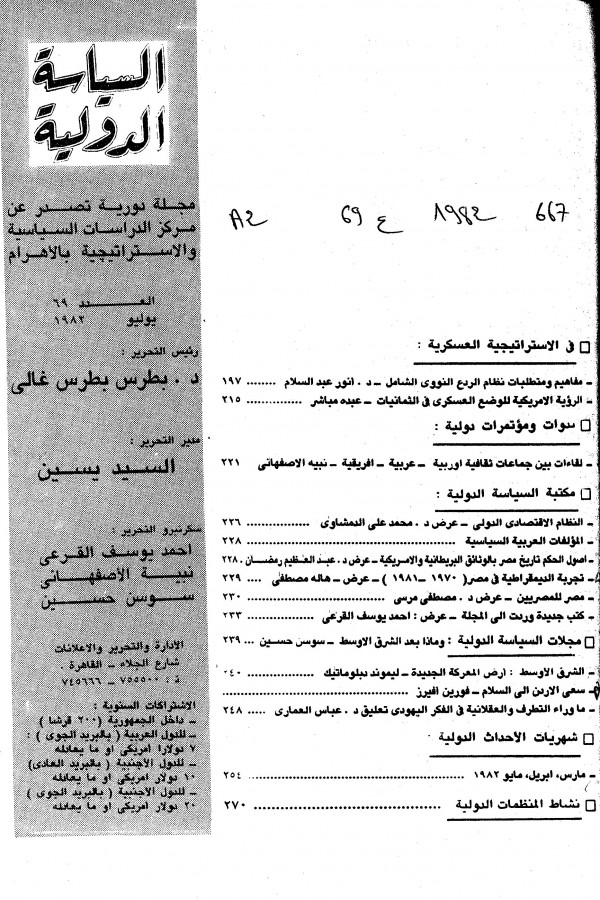 السياسة
الدولية
مجلة دورية تصدر عن
مركز الدراسات السياسية
والاستراتيجية بالاهرام
العدد ٦٩
يوليو ١٩٨٢
رئيس التحرير :
د . بطرس بطرس غالى
مدير التحرير :
السيد يسين
سكرتيرو التحرير :
احمد يوسف القرعى
نبية الأصفهانى
سوسن حسين
الادارة والتحرير والاعلانات
شارع الجلاء - القاهرة .
ت : ٧٥٥٥٠٠ - ٧٤٥٦٦٦
الاشتراكات السنوية :
- داخل الجمهورية ( ٢٠٠ قرشا )
- للدول العربية ( بالبريد الجوى ) :
٧ دولارا امريكى او ما يعادله
- للدول الأجنبية ( بالبريد العادى)
١٠ دولار امريكى او ما يعادله
- للدول الأجنبية ( بالبريد الجوى )
٢٠ دولار امريكى او ما يعادله
A2 69 ع 1982 667
□ فى الاستراتيجية العسكرية :
- مفاهيم ومتطلبات نظام الردع النووى الشامل - د . أنور عبد السلام ........ ١٩٧
- الرؤية الامريكية للوضع العسكرى فى الثمانيات - عبده مباشر .............. ٢١٥
□ ندوات ومؤتمرات دولية :
- لقاءات بين جماعات ثقافية اوربية - عربية - افريقية - نبيه الاصفهانى ٢٢١
□ مكتبة السياسة الدولية :
- النظام الاقتصادى الدولى - عرض د . محمد على الدمشاوى .............. ٢٢٦
- المؤلفات العربية السياسية .............. ٢٢٨
- اصول الحكم تاريخ مصر بالوثائق البريطانية والامريكية - عرض د . عبد العظيم رمضان . ٢٢٨
- تجربة الديمقراطية فى مصر ( ١٩٧٠ - ١٩٨١ ) - عرض - هاله مصطفى .... ٢٢٩
- مصر للمصريين - عرض د . مصطفى مرسى .............. ٢٣٠
- كتب جديدة وردت الى المجلة - عرض : احمد يوسف القرعى ........ ٢٣٣
□ مجلات السياسة الدولية : وماذا بعد الشرق الاوسط - سوسن حسين .... ٢٣٩
- الشرق الاوسط : أرض المعركة الجديدة - ليموند دبلوماتيك .......... ٢٤٠
- سعى الاردن الى السلام - فورين أفيرز ..............
- ما وراء التطرف والعقلانية فى الفكر اليهودى تعليق د . عباس العمارى ..... ٢٤٨
□ شهريات الأحداث الدولية :
- مارس، ابريل، مايو ١٩٨٢ .............. ٢٥٤
□ نشاط المنظمات الدولية .............. ٢٧٠